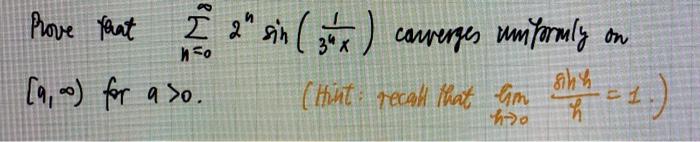 Prove that ∞∑n=0 2ⁿ sin(1/3ⁿx) converges uniformly on
[a,∞) for a>0. (Hint: recall that lim h→0 sin h/h = 1.)